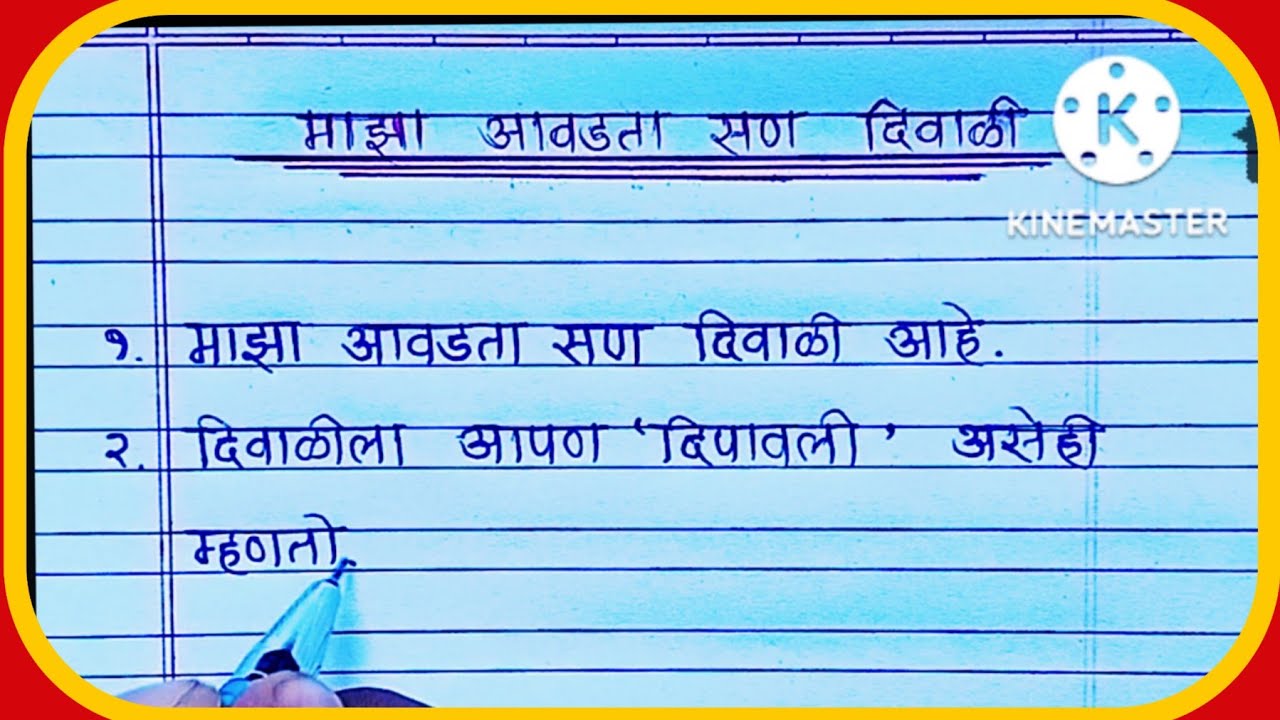 माझा आवडता सण दिवाळी
K
KINEMASTER
१. माझा आवडता सण दिवाळी आहे.
२. दिवाळीला आपण 'दिपावली' असेही
म्हणतो.